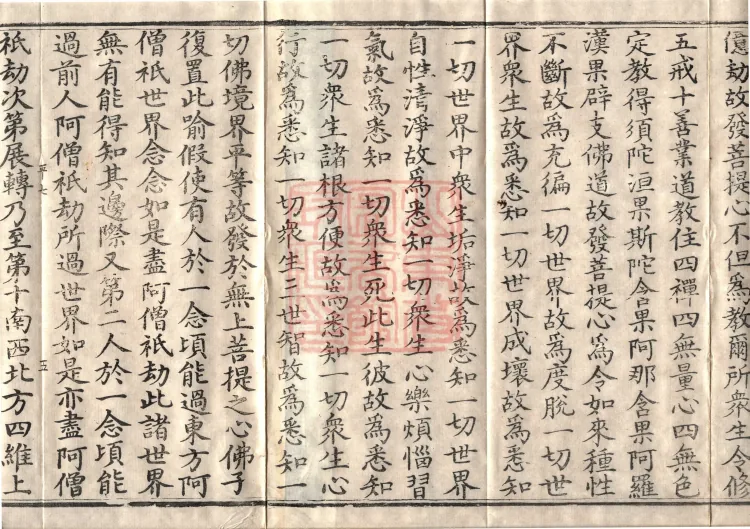 億劫故發菩提心不但為教爾所衆生令修
五戒十善業道教住四禪四無量心四無色
定教得須陀洹果斯陀含果阿那含果阿羅
漢果辟支佛道故發菩提心為令如來種性
不斷故為充徧一切世界故為度脫一切世
界衆生故為悉知一切世界成壞故為悉知
一切世界中衆生垢淨故為悉知一切世界
自性清淨故為悉知一切衆生心樂煩惱習
氣故為悉知一切衆生死此生彼故為悉知
一切衆生諸根方便故為悉知一切衆生心
行故為悉知一切衆生三世智故為悉知一
切佛境界平等故發於無上菩提之心佛子
復置此喻假使有人於一念頃能過東方阿
僧祇世界念念如是盡阿僧祇劫此諸世界
無有能得知其邊際又第二人於一念頃能
過前人阿僧祇劫所過世界如是亦盡阿僧
平七
五
祇劫次第展轉乃至第十南西北方四維上